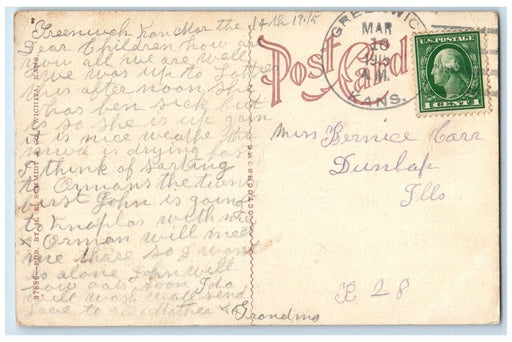 Greenwich Kan Mar the 14th 1915
Dear Children how are
you all we are well
we was up to
this afternoon she
has ben sick but
is so she is up gain
it is nice weathe the
mud is drying fast
I think of starting
to Ormans the
first John is going
to with me
Orman will meet
me there so I wont
be alone John will
sow oats soon I do
will send
love to all Mother &
Grandma
Post Card
GREENWICH
MAR
16
1915
A.M.
KANS.
U.S. POSTAGE
1 CENT 1
Miss Bernice Carr
Dunlap
Ills
R 28
OCTOCHROME